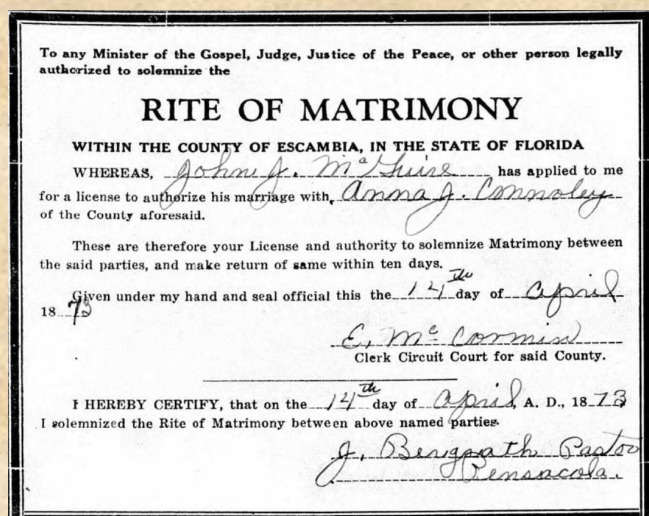 To any Minister of the Gospel, Judge, Justice of the Peace, or other person legally
authorized to solemnize the
RITE OF MATRIMONY
WITHIN THE COUNTY OF ESCAMBIA, IN THE STATE OF FLORIDA
WHEREAS, John J. McGuire has applied to me
for a license to authorize his marriage with, Anna J. Connoley
of the County aforesaid.
These are therefore your License and authority to solemnize Matrimony between
the said parties, and make return of same within ten days.
Given under my hand and seal official this the 14th day of April
1873
E. Mc Cormin
Clerk Circuit Court for said County.
I HEREBY CERTIFY, that on the 14th day of April, A. D., 1873
I solemnized the Rite of Matrimony between above named parties.
J. Pastor
Pensacola.